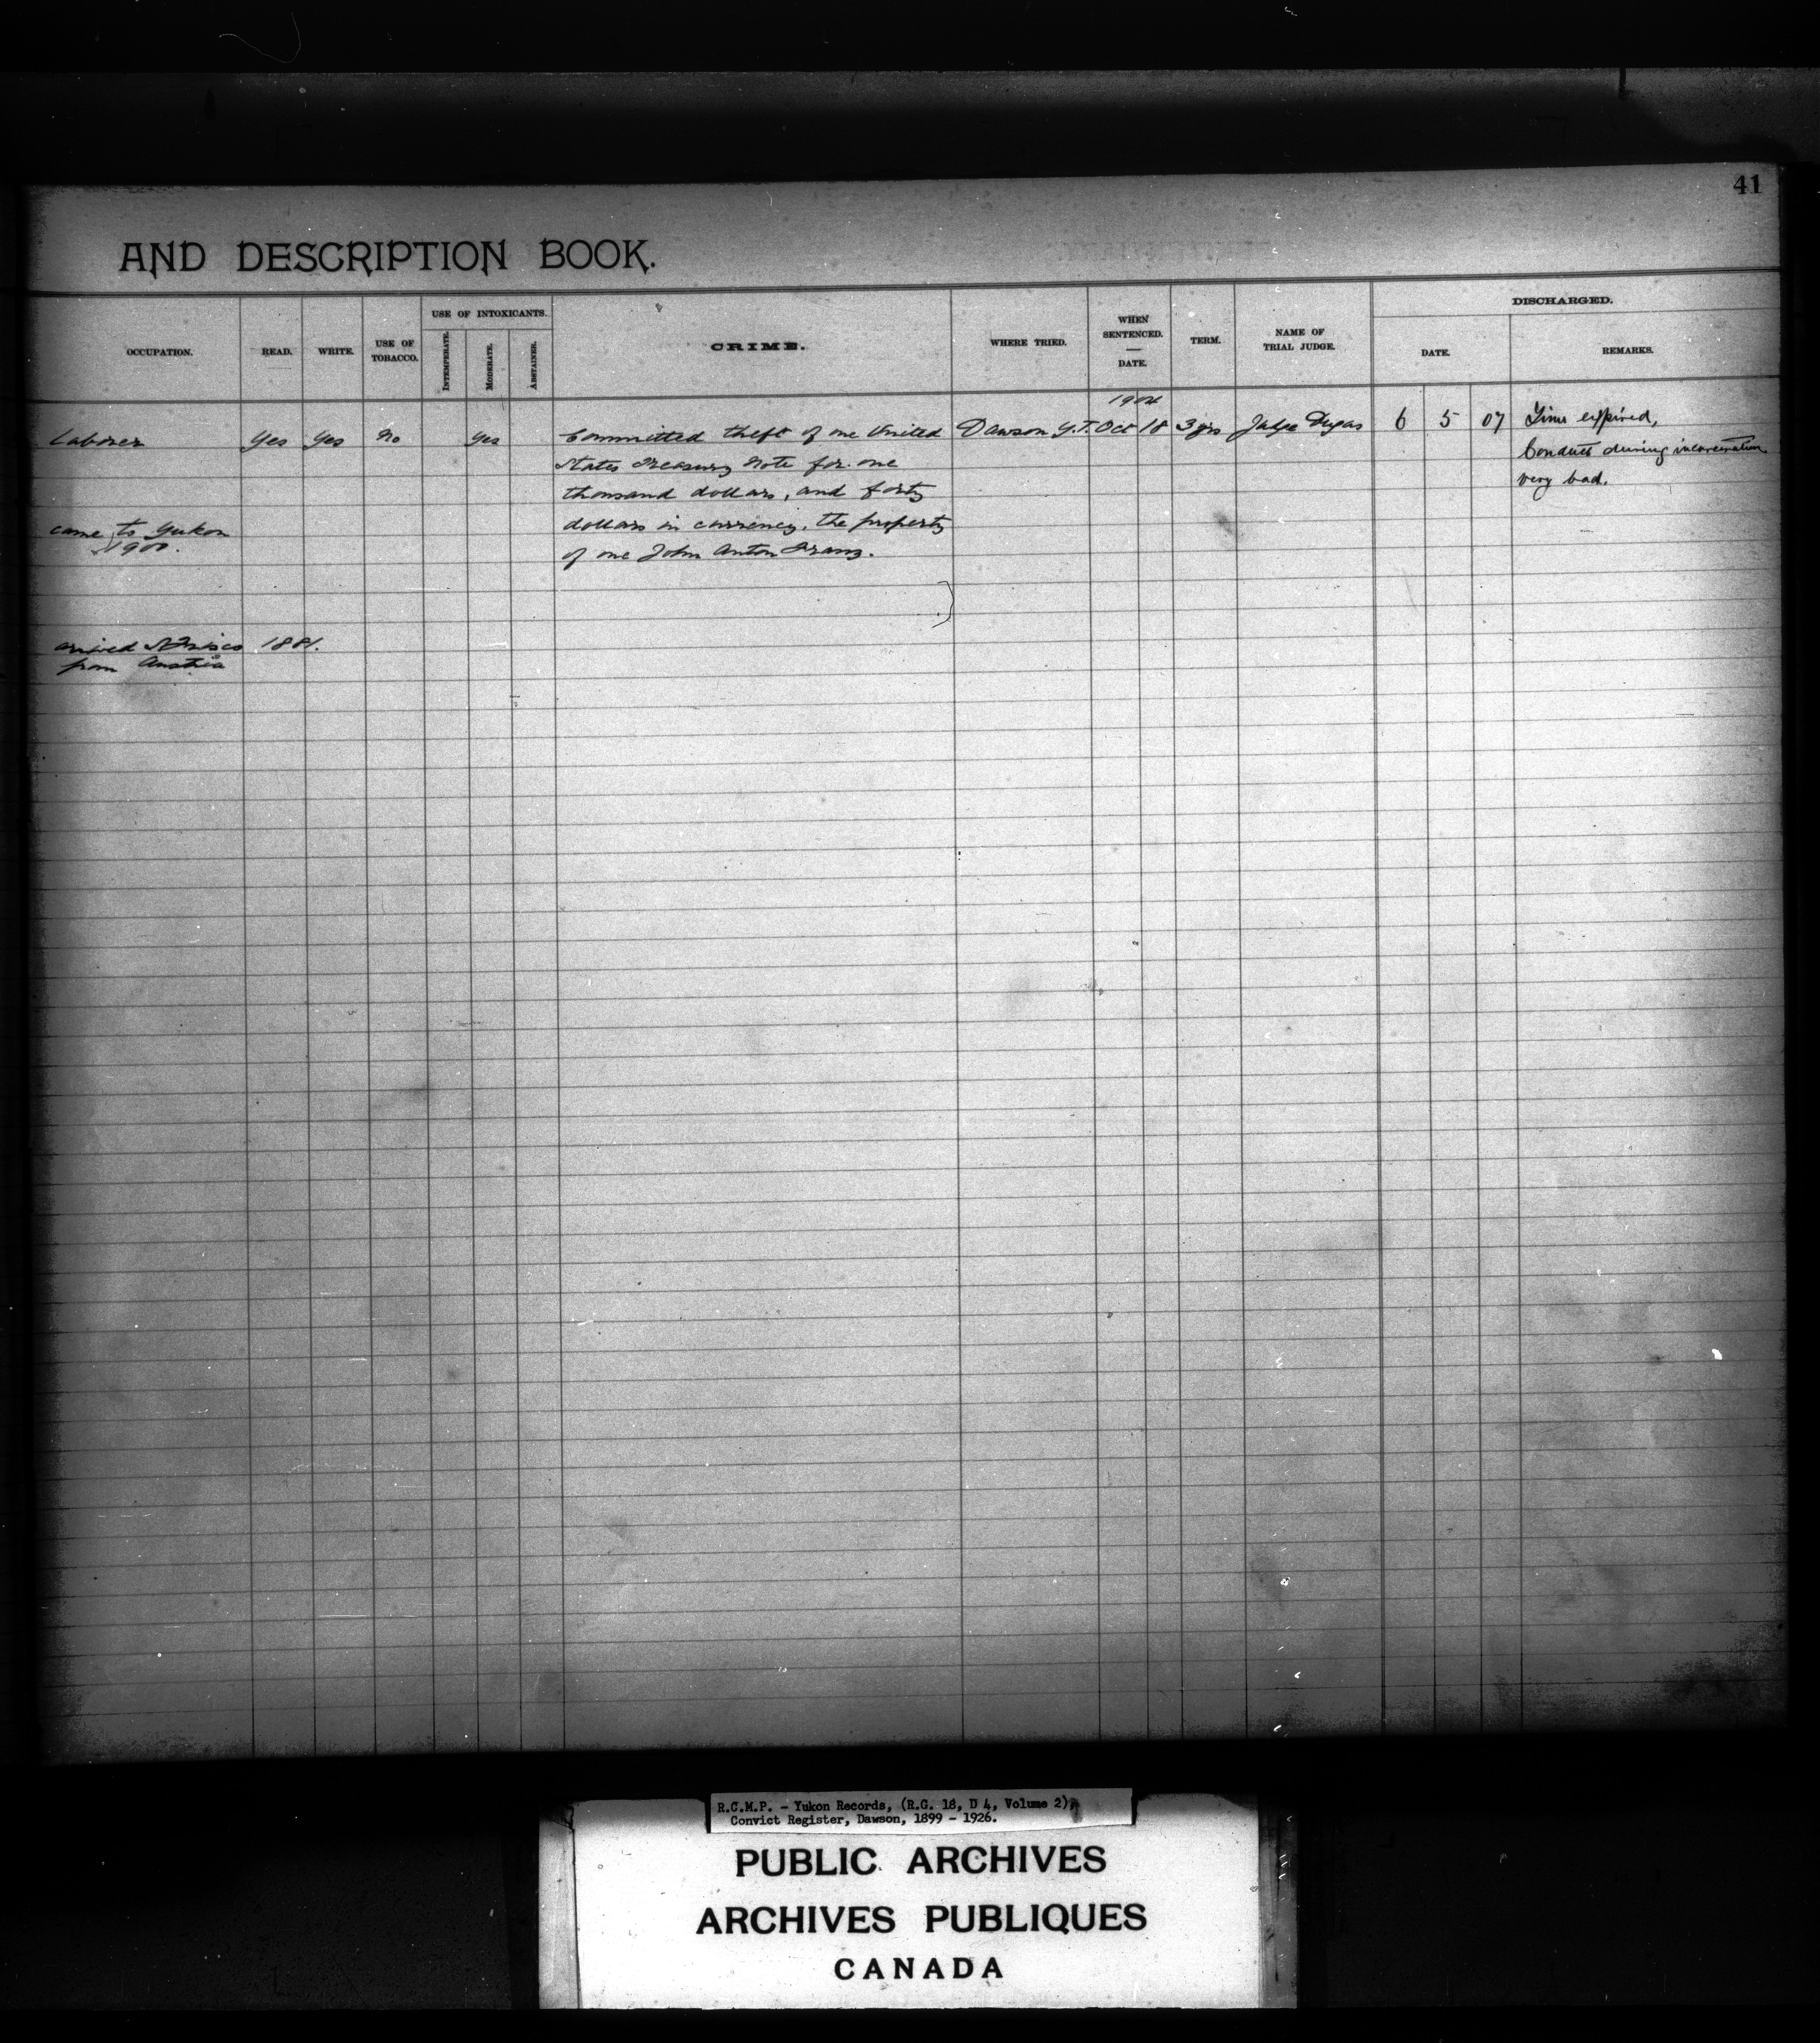 41
AND DESCRIPTION BOOK.
OCCUPATION.
READ.
WRITE.
USE OF TOBACCO.
USE OF INTOXICANTS.
INTEMPERATE.
MODERATE.
ABSTAINER.
CRIME.
WHERE TRIED.
WHEN SENTENCED.
DATE.
TERM.
NAME OF TRIAL JUDGE.
DISCHARGED.
DATE.
REMARKS.
1904
Laborer Yes Yes No Yes Committed theft of one United Dawson Y.T. Oct 18 3 yrs Judge Dugas 6 5 07 Time expired,
States Treasury Note for one Conduct during incarceration
thousand dollars, and forty very bad.
came to Yukon dollars in currency, the property
1900. of one John Anton
arrived 1881.
from Austria
R.C.M.P. - Yukon Records, (R.G. 18, D 4, Volume 2)
Convict Register, Dawson, 1899 - 1926.
PUBLIC ARCHIVES
ARCHIVES PUBLIQUES
CANADA